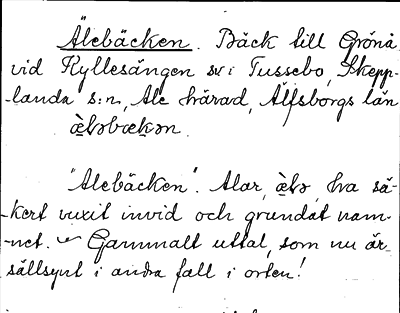 Älebäcken. Bäck till Grönå
vid Kyllesängen sv i Tussebo, Skepp-
-landa s:n, Ale härad, Älfsborgs län
"Alebäcken". Alar, ha sä-
-kert vuxit invid och grundat nam-
-net. Gammalt uttal, som nu är
sällsynt i andra fall i orten!